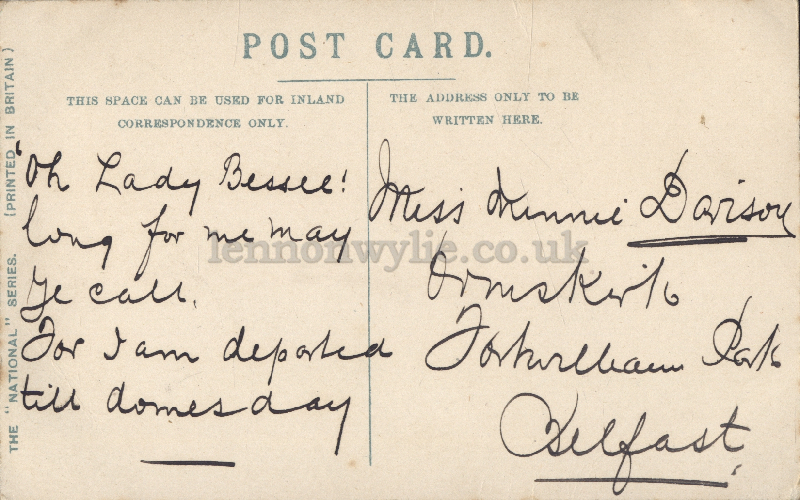 POST CARD.
THIS SPACE CAN BE USED FOR INLAND
CORRESPONDENCE ONLY.
THE ADDRESS ONLY TO BE
WRITTEN HERE.
THE "NATIONAL" SERIES. (PRINTED IN BRITAIN)
"Oh Lady Bessee!
long for me may
Ye call.
For I am departed
till domesday
Miss Minnie Davison
Ormskirk
Fortwilliam Park
Belfast.
lennonwylie.co.uk